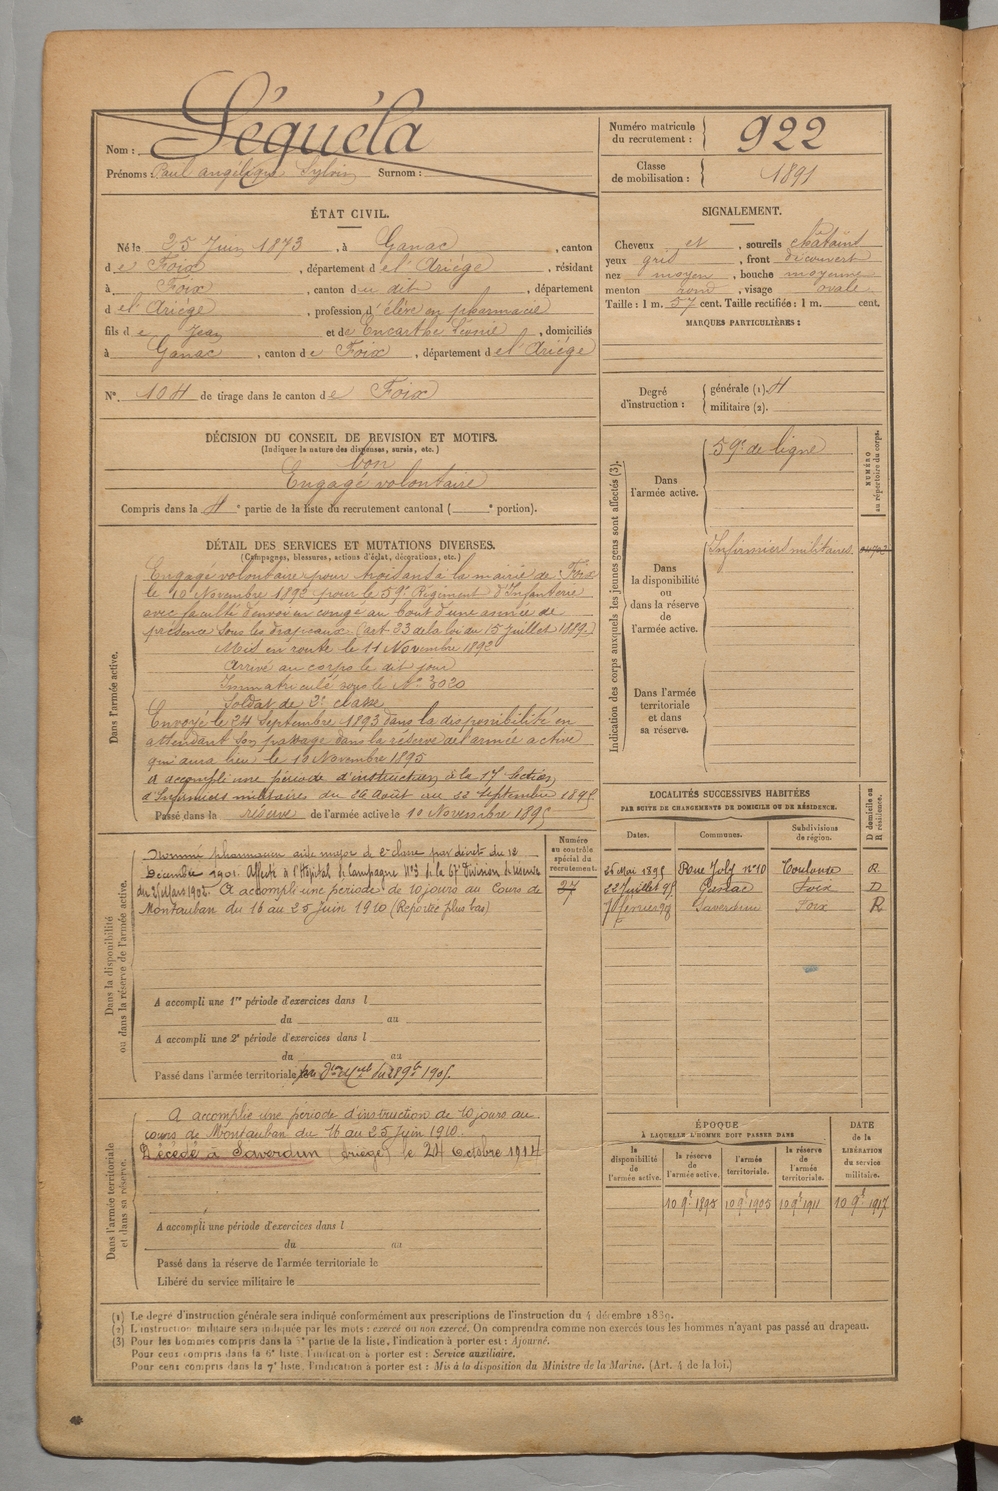 Nom : Séguéla
Prénoms : Paul angélique Sylvin Surnom :
Numéro matricule du recrutement : 922
Classe de mobilisation : 1891
ÉTAT CIVIL.
Né le 25 Juin 1873, à Ganac, canton
de Foix, département de l'Ariége, résidant
à Foix, canton du dit, département
de l'Ariége, profession d'élève en pharmacie
fils de Jean et de Encarthe Léonie, domiciliés
à Ganac, canton de Foix, département de l'Ariége
N° 104 de tirage dans le canton de Foix
SIGNALEMENT.
Cheveux et, sourcils châtains
yeux gris, front découvert
nez moyen, bouche moyenne
menton rond, visage ovale
Taille : 1 m. 57 cent. Taille rectifiée : 1 m. cent.
MARQUES PARTICULIÈRES :
Degré d'instruction : générale (1). 4
militaire (2).
DÉCISION DU CONSEIL DE REVISION ET MOTIFS.
(Indiquer la nature des dispenses, sursis, etc.)
bon
Engagé volontaire
Compris dans la 4e partie de la liste du recrutement cantonal ( e portion).
DÉTAIL DES SERVICES ET MUTATIONS DIVERSES.
(Campagnes, blessures, actions d'éclat, décorations, etc.)
Dans l'armée active.
Engagé volontaire pour trois ans à la mairie de Foix
le 10 Novembre 1892 pour le 59e Régiment d'Infanterie
avec faculté d'envoi en congé au bout d'une année de
présence sous les drapeaux (art 33 de la loi du 15 Juillet 1889)
Mis en route le 11 Novembre 1892
Arrivé au corps le dit jour
Immatriculé sous le N° 3020
Soldat de 2e classe
Envoyé le 24 Septembre 1893 dans la disponibilité en
attendant son passage dans la réserve de l'armée active
qui aura lieu le 10 Novembre 1895
A accompli une période d'instruction à la 17 Section
d'Infirmiers militaires du 26 Août au 22 Septembre 1895
Passé dans la réserve de l'armée active le 10 Novembre 1895
Indication des corps auxquels les jeunes gens sont affectés (3).
NUMÉRO au répertoire du corps.
Dans l'armée active.
59e de ligne
Dans la disponibilité ou dans la réserve de l'armée active.
Infirmiers militaires.
Dans l'armée territoriale et dans sa réserve.
LOCALITÉS SUCCESSIVES HABITÉES
PAR SUITE DE CHANGEMENTS DE DOMICILE OU DE RÉSIDENCE.
D domicile ou R résidence.
Dates. Communes. Subdivisions de région.
26 Mai 1895 Rue Joly n° 10 Toulouse R
22 Juillet 95 Ganac Foix D
février 98 Saverdun Foix R
Dans la disponibilité ou dans la réserve de l'armée active.
Numéro au contrôle spécial du recrutement.
27
Nommé pharmacien aide major de 2e classe par décret du 12
Décembre 1901. Affecté à l'Hôpital de Campagne N°3 de la 67e Division de réserve
du 25 Mars 1902. A accompli une période de 10 jours au Cours de
Montauban du 16 au 25 Juin 1910 (Reportée plus bas)
A accompli une 1re période d'exercices dans l
du au
A accompli une 2e période d'exercices dans l
du au
Passé dans l'armée territoriale 1905.
Dans l'armée territoriale et dans sa réserve.
A accomplie une période d'instruction de 10 jours au
cours de Montauban du 16 au 25 Juin 1910.
Décédé à Saverdun (Ariège) le 24 Octobre 1914
A accompli une période d'exercices dans l
du au
Passé dans la réserve de l'armée territoriale le
Libéré du service militaire le
ÉPOQUE
A LAQUELLE L'HOMME DOIT PASSER DANS
DATE de la LIBÉRATION du service militaire.
la disponibilité de l'armée active. la réserve de l'armée active. l'armée territoriale. la réserve de l'armée territoriale.
10 9e 1895 10 9e 1905 10 9e 1911 10 9e 1917
(1) Le degré d'instruction générale sera indiqué conformément aux prescriptions de l'instruction du 4 décembre 1889.
(2) L'instruction militaire sera indiquée par les mots : exercé ou non exercé. On comprendra comme non exercés tous les hommes n'ayant pas passé au drapeau.
(3) Pour les hommes compris dans la 5e partie de la liste, l'indication à porter est : Ajourné.
Pour ceux compris dans la 6e liste, l'indication à porter est : Service auxiliaire.
Pour ceux compris dans la 7e liste, l'indication à porter est : Mis à la disposition du Ministre de la Marine. (Art. 4 de la loi.)